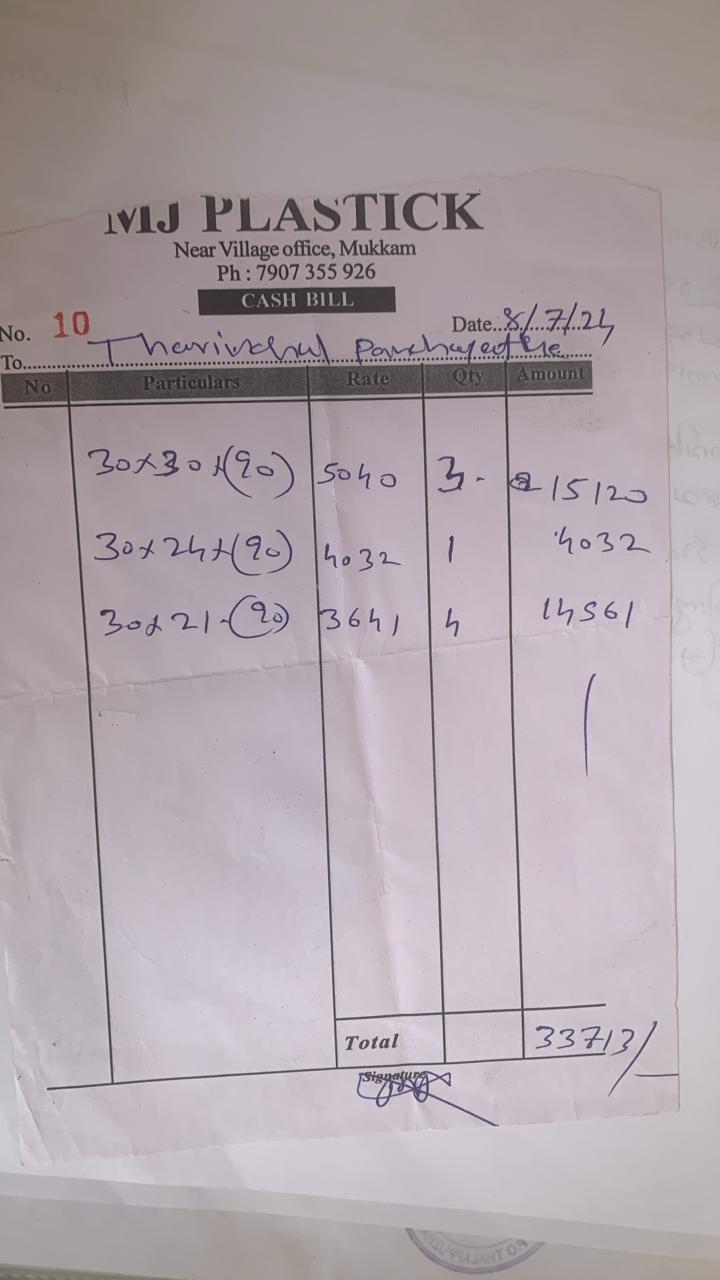 MJ PLASTICK
Near Village office, Mukkam
Ph : 7907 355 926
CASH BILL
No. 10 Date..8/7/24
To
No Particulars Rate Qty Amount
30x30x(90) 5040 3- 15120
30x24x(90) 4032 1 4032
30x21-(90) 3641 4 14561
Total 33713/-
Signature